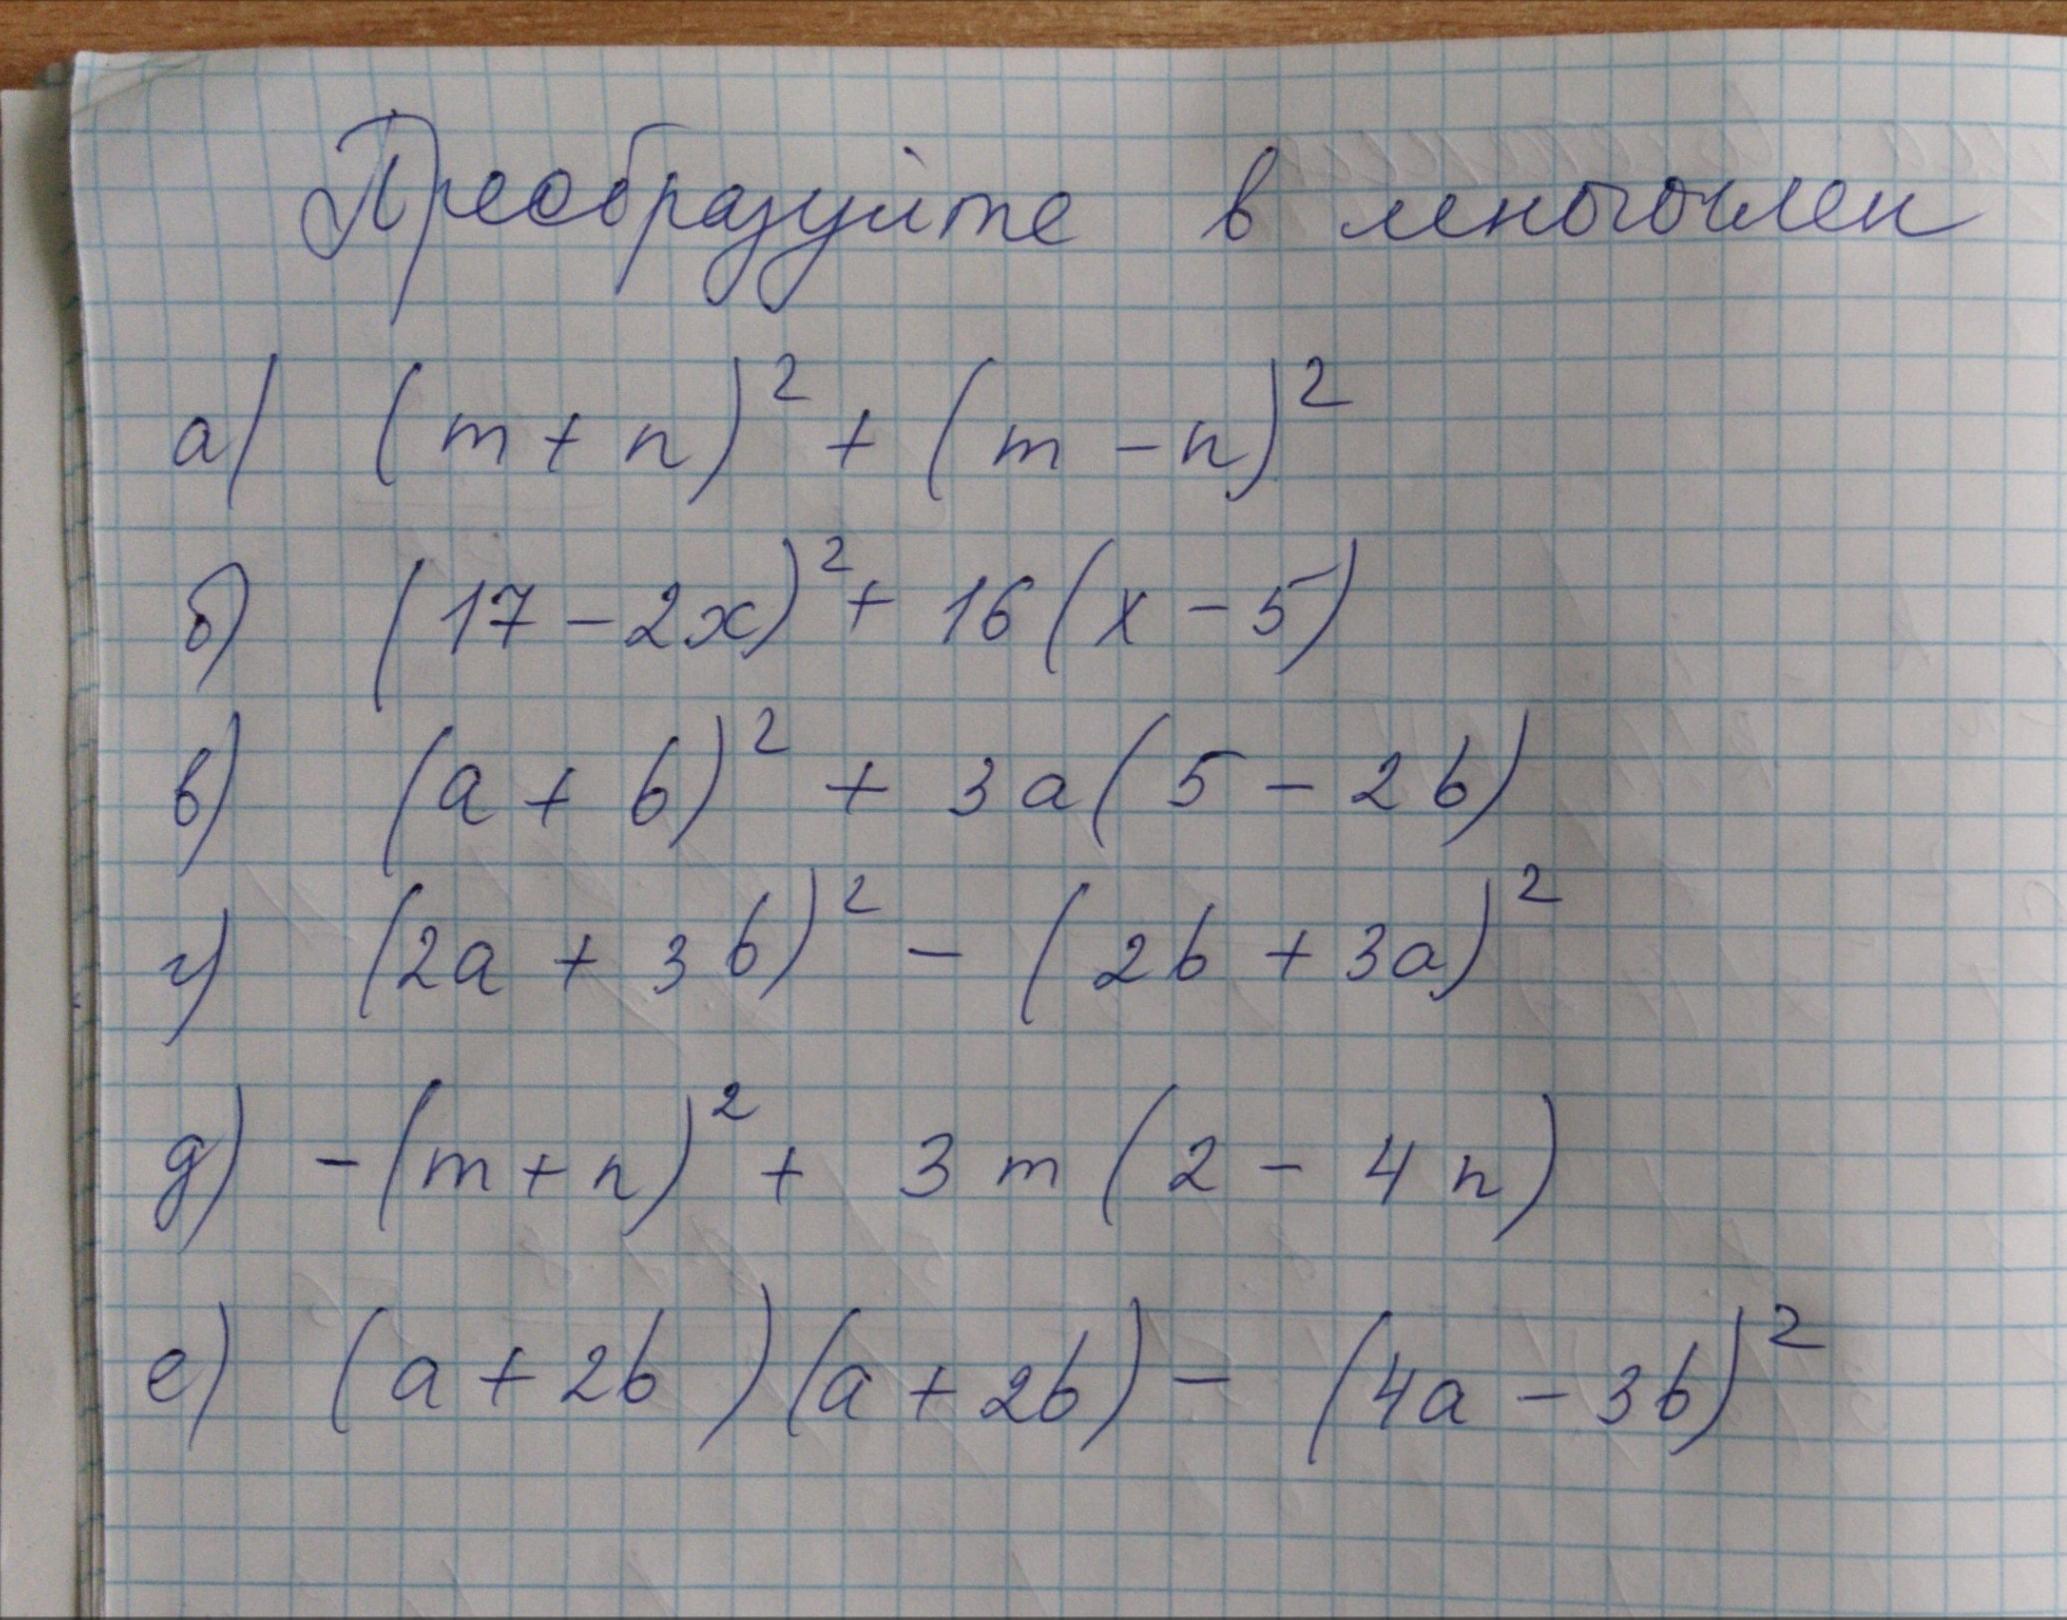 Преобразуйте в многочлен
а) (m + n)² + (m - n)²
б) (17 - 2x)² + 16(x - 5)
в) (a + b)² + 3a(5 - 2b)
г) (2a + 3b)² - (2b + 3a)²
д) -(m + n)² + 3m(2 - 4n)
е) (a + 2b)(a + 2b) - (4a - 3b)²